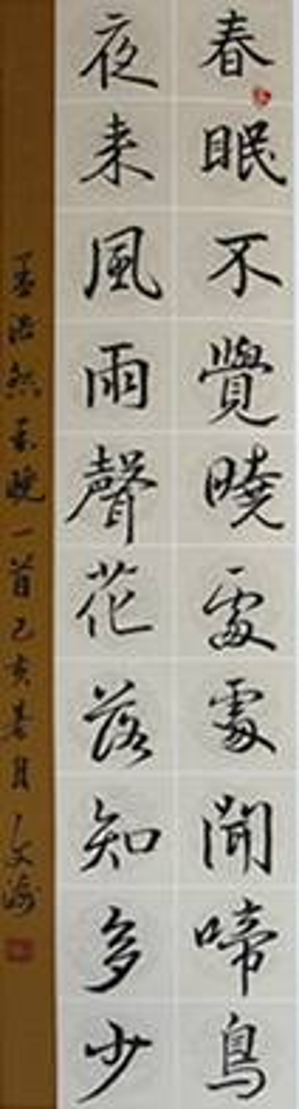 春眠不覺曉處處聞啼鳥
夜来風雨聲花落知多少
孟浩然春曉一首己亥春月文海